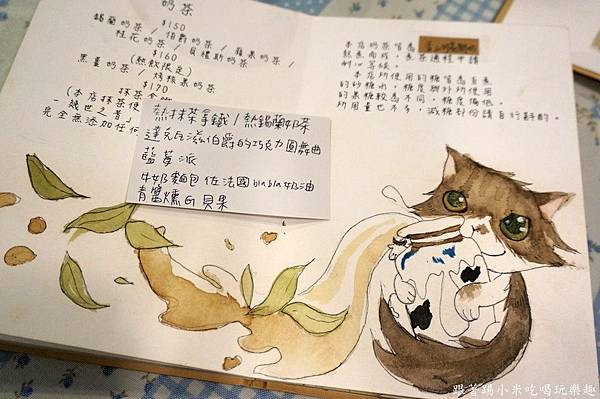 奶茶
$150
錫蘭奶茶 / 伯爵奶茶 / 蘋果奶茶 /
桂花奶茶 / 貝禮斯奶茶 /
$160
(熱飲限定)
黑薑奶茶 / 烤核果奶茶
$170
抹茶拿鐵
(本店抹茶使
一幾世之昔」
完全無添加任何
熱抹茶拿鐵 / 熱錫蘭奶茶
達克瓦滋伯爵的巧克力圓舞曲
藍莓派
牛奶麵包佐法國blabla奶油
青醬燻G貝果
本店奶茶皆為
熬煮而成，煮茶過程中請
耐心等候。
本店所使用的糖皆為自煮
的砂糖水，糖度與外所使用
的果糖較為不同，糖度偏低。
功用量也不多，減糖部份請自行斟酌。
跟著踢小米吃喝玩樂趣